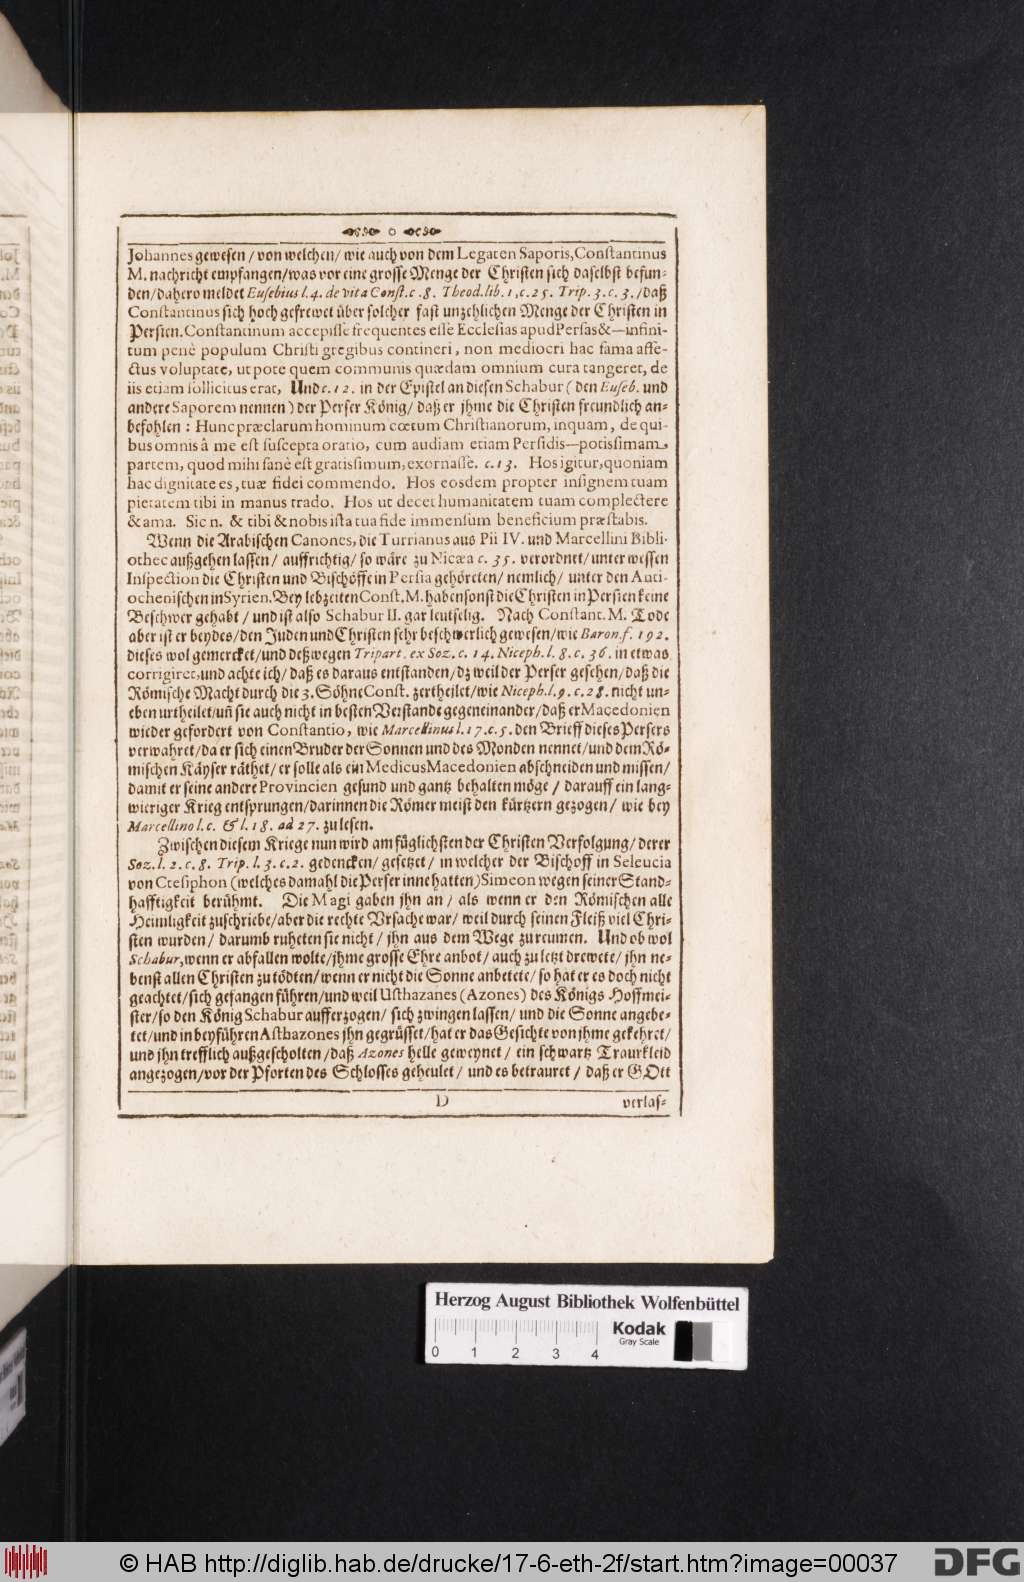 Johannes gewesen / von welchen / wie auch von dem Legaten Saporis, Constantinus
M. nachricht empfangen / was vor eine grosse Menge der Christen sich daselbst befun-
den / dahero meldet Eusebius l. 4. de vita Const. c. 8. Theod. lib. 1. c. 25. Trip. 3. c. 3. / daß
Constantinus sich hoch gefrewet über solcher fast unzehlichen Menge der Christen in
Persien. Constantinum accepisse frequentes esse Ecclesias apud Persas &— infini-
tum penè populum Christi gregibus contineri, non mediocri hac fama affe-
ctus voluptate, ut pote quem communis quædam omnium cura tangeret, de
iis etiam sollicitus erat, Und c. 12. in der Epistel an diesen Schabur ( den Euseb. und
andere Saporem nennen ) der Perser König / daß er jhme die Christen freundlich an-
befohlen : Hunc præclarum hominum cœtum Christianorum, inquam, de qui-
bus omnis â me est suscepta oratio, cum audiam etiam Persidis — potissimam
partem, quod mihi sanè est gratissimum, exornasse. c. 13. Hos igitur, quoniam
hac dignitate es, tuæ fidei commendo. Hos eosdem propter insignem tuam
pietatem tibi in manus trado. Hos ut decet humanitatem tuam complectere
& ama. Sic n. & tibi & nobis ista tua fide immensum beneficium præstabis.
Wenn die Arabischen Canones, die Turrianus aus Pii IV. und Marcellini Bibli-
othec außgehen lassen / auffrichtig / so wäre zu Nicæa c. 35. verordnet / unter wessen
Inspection die Christen und Bischöffe in Persia gehöreten / nemlich / unter den Anti-
ochenischen in Syrien. Bey lebzeiten Const. M. haben sonst die Christen in Persien keine
Beschwer gehabt / und ist also Schabur II. gar leutselig. Nach Constant. M. Tode
aber ist er beydes / den Juden und Christen sehr beschwerlich gewesen / wie Baron. f. 192.
dieses wol gemercket / und deßwegen Tripart. ex Soz. c. 14. Niceph. l. 8. c. 36. in etwas
corrigiret, und achte ich / daß es daraus entstanden / dz weil der Perser gesehen / daß die
Römische Macht durch die 3. Söhne Const. zertheilet / wie Niceph. l. 9. c. 28. nicht un-
eben urtheilet / uñ sie auch nicht in besten Verstande gegeneinander / daß er Macedonien
wieder gefordert von Constantio, wie Marcellinus l. 17. c. 5. den Brieff dieses Persers
verwahret / da er sich einen Bruder der Sonnen und des Monden nennet / und dem Rö-
mischen Käyser räthet / er solle als ein Medicus Macedonien abschneiden und missen /
damit er seine andere Provincien gesund und gantz behalten möge / darauff ein lang-
wieriger Krieg entsprungen / darinnen die Römer meist den kürtzern gezogen / wie bey
Marcellino l. c. & l. 18. ad 27. zu lesen.
Zwischen diesem Kriege nun wird am füglichsten der Christen Verfolgung / derer
Soz. l. 2. c. 8. Trip. l. 3. c. 2. gedencken / gesetzet / in welcher der Bischoff in Seleucia
von Ctesiphon ( welches damahl die Perser inne hatten ) Simeon wegen seiner Stand-
hafftigkeit berühmt. Die Magi gaben jhn an / als wenn er den Römischen alle
Heimligkeit zuschriebe / aber die rechte Ursache war / weil durch seinen Fleiß viel Chri-
sten wurden / darumb ruheten sie nicht / jhn aus dem Wege zu reumen. Und ob wol
Schabur, wenn er abfallen wolte / jhme grosse Ehre anbot / auch zu letzt drewete / jhn ne-
benst allen Christen zu tödten / wenn er nicht die Sonne anbetete / so hat er es doch nicht
geachtet / sich gefangen führen / und weil Usthazanes ( Azones ) des Königs Hoffmei-
ster / so den König Schabur aufferzogen / sich zwingen lassen / und die Sonne angebe-
tet / und in beyführen Asthazones jhn gegrüsset / hat er das Gesichte von jhme gekehret /
und jhn trefflich außgescholten / daß Azones helle geweynet / ein schwartz Traurkleid
angezogen / vor der Pforten des Schlosses geheulet / und es betrauret / daß er GOtt
D verlas-
Herzog August Bibliothek Wolfenbüttel
Kodak
Gray Scale
0 1 2 3 4
© HAB http://diglib.hab.de/drucke/17-6-eth-2f/start.htm?image=00037
DFG